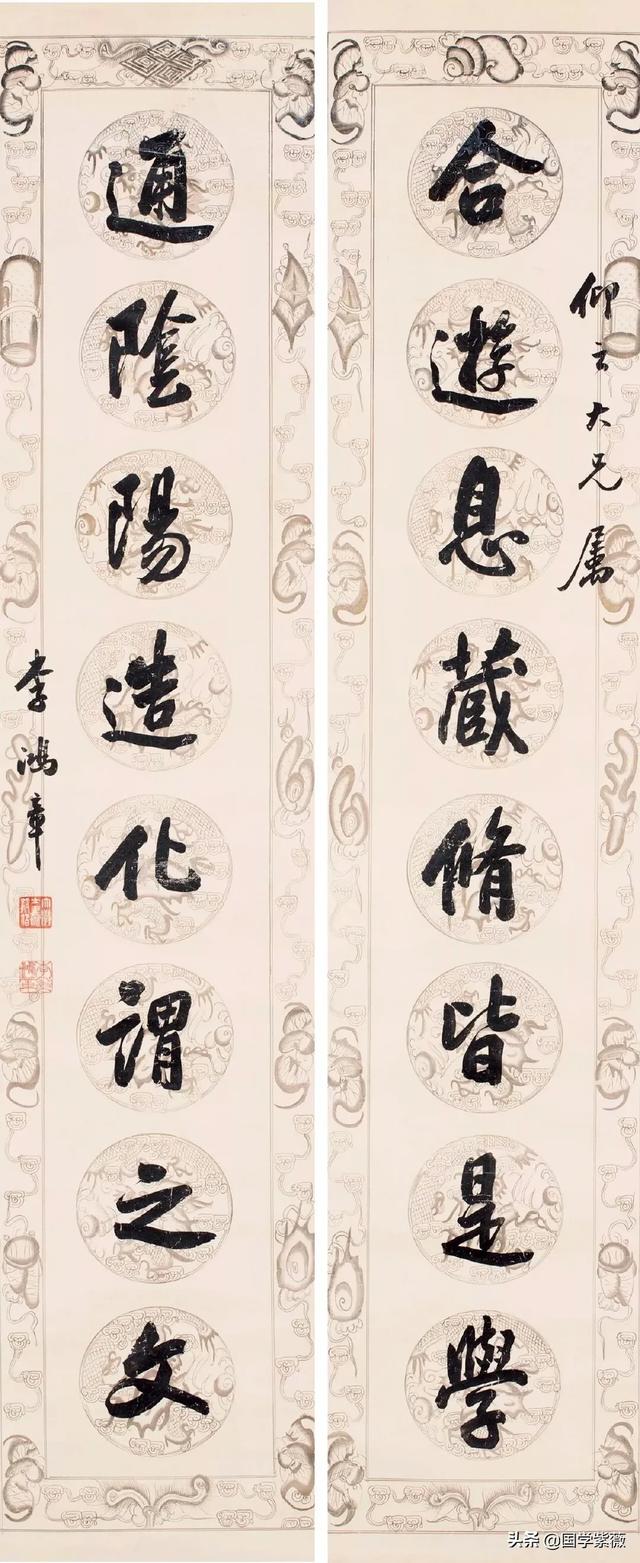 仰云大兄属
合遊息蔵脩皆是學
通陰陽造化謂之文
李鴻章
头条 @国学紫薇